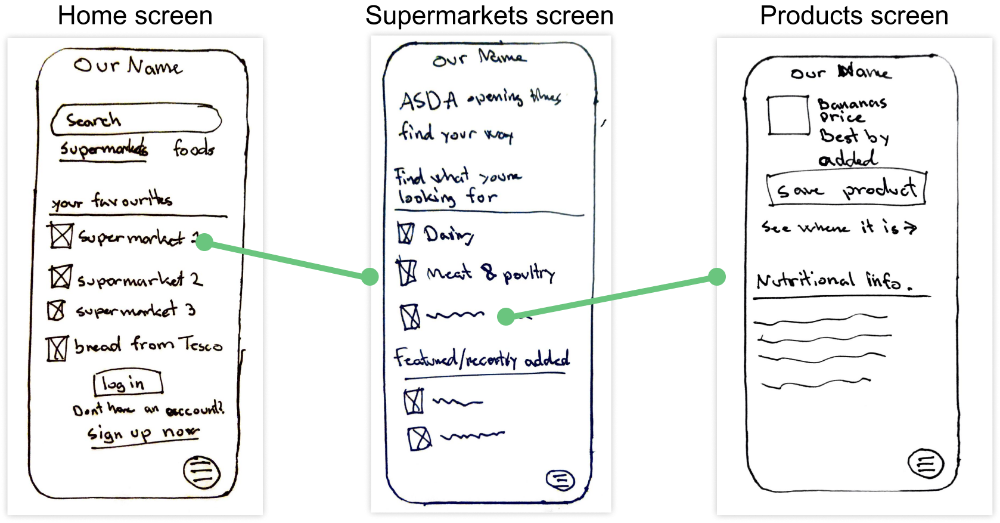 Home screen
Our Name
Search
Supermarkets foods
your favourites
supermarket 1
supermarket 2
supermarket 3
bread from Tesco
log in
Dont have an account?
sign up now
Supermarkets screen
Our Name
ASDA opening times
find your way
Find what youre
looking for
Dairy
Meat & poultry
Featured/recently added
Products screen
Our Name
Bananas
Price
Best by
added
save product
See where it is →
Nutritional info.